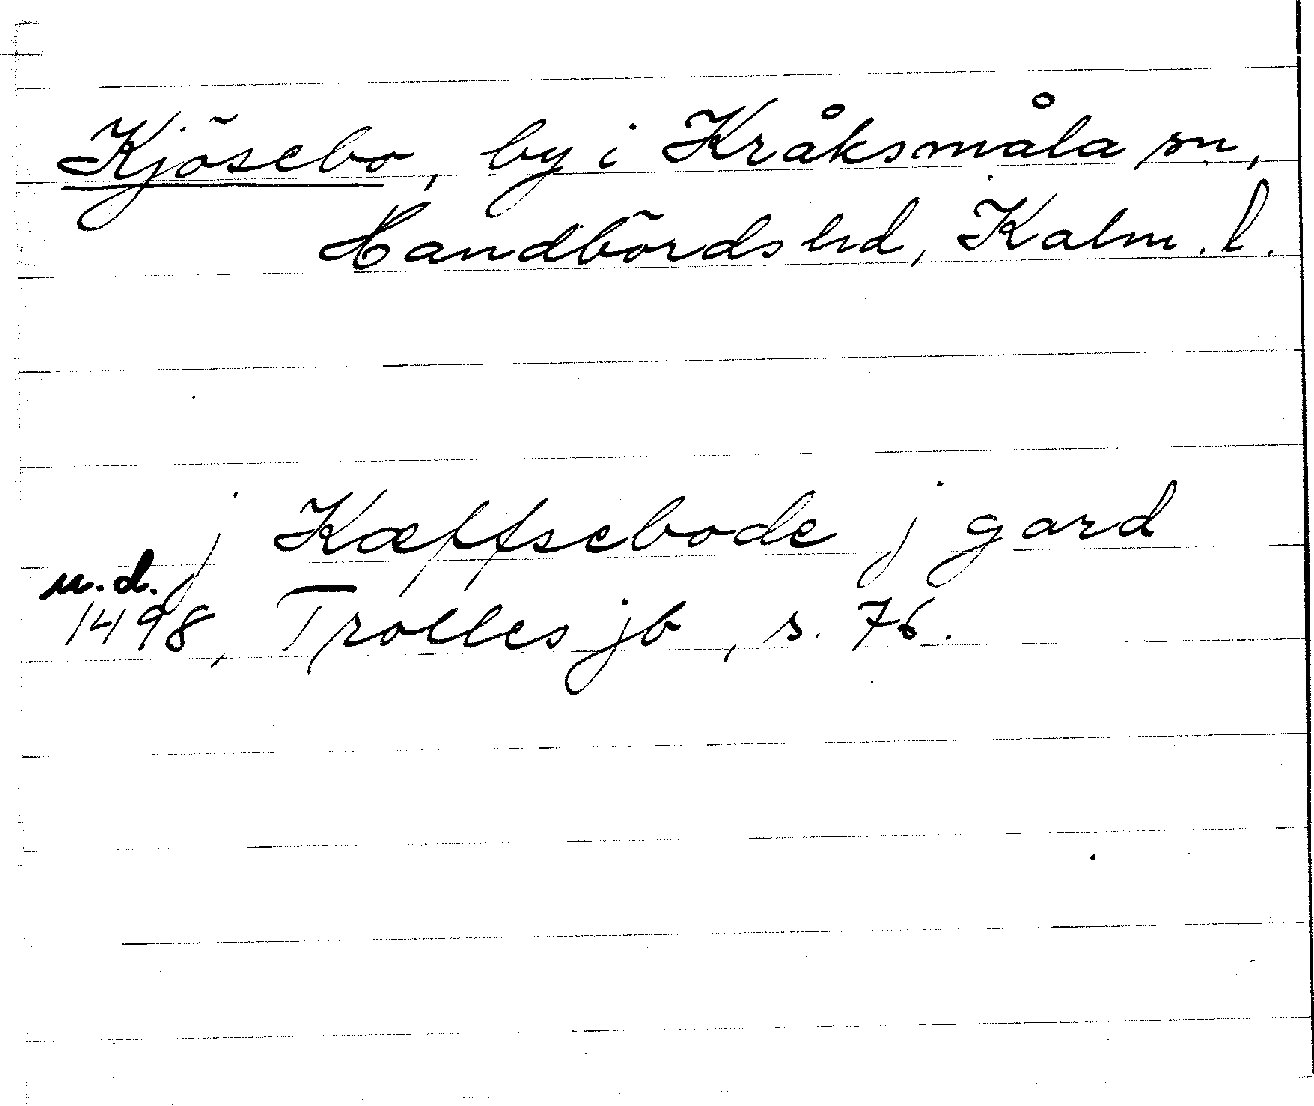 Kjösebo, by i Kråksmåla sn,
Handbörds hd, Kalm. l.
j Kæffsebode j gard
u.d.
1498, Trolles jb, s. 76.